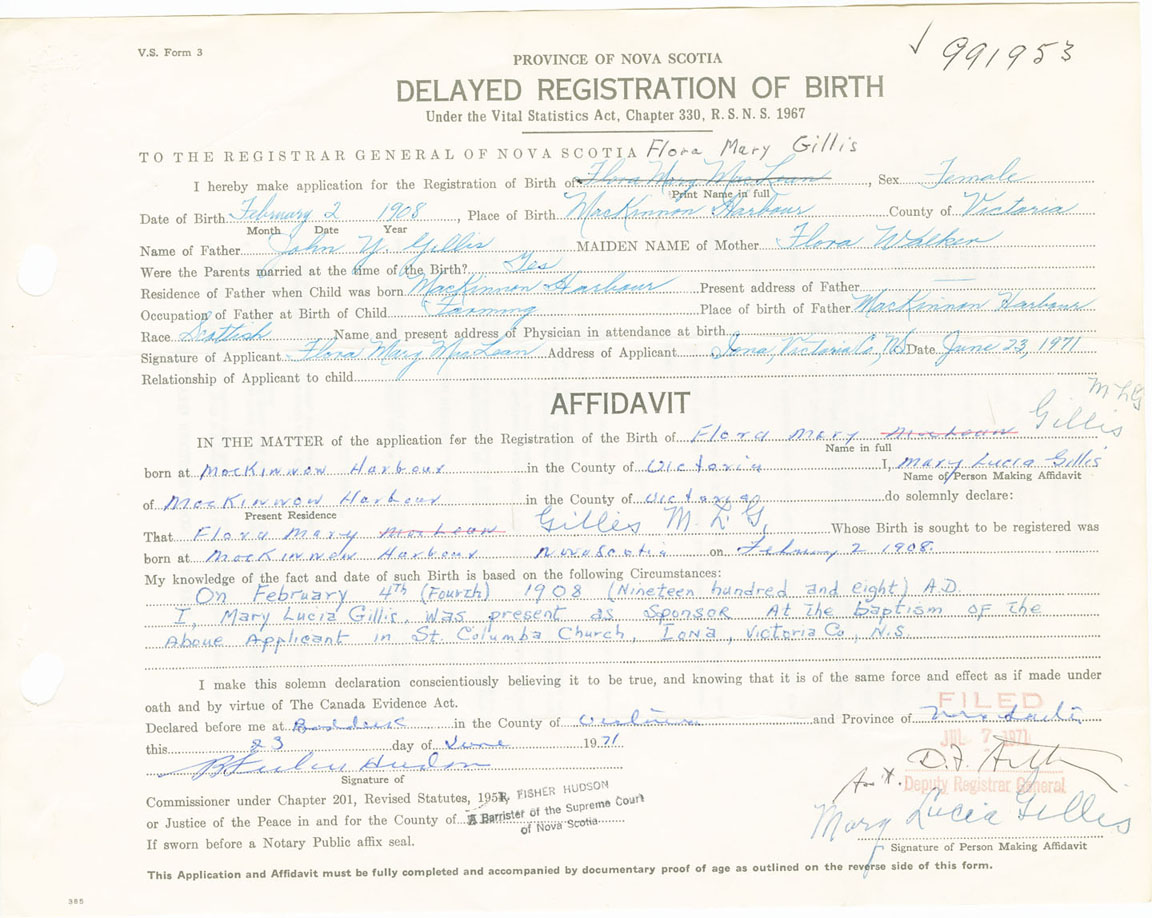 V.S. Form 3
991953
PROVINCE OF NOVA SCOTIA
DELAYED REGISTRATION OF BIRTH
Under the Vital Statistics Act, Chapter 330, R.S.N.S. 1967
TO THE REGISTRAR GENERAL OF NOVA SCOTIA Flora Mary Gillis
I hereby make application for the Registration of Birth of Flora Mary MacLean, Sex Female
Print Name in full
Date of Birth February 2 1908, Place of Birth MacKinnon Harbour County of Victoria
Month Date Year
Name of Father John Y. Gillis MAIDEN NAME of Mother Flora Walker
Were the Parents married at the time of the Birth? Yes
Residence of Father when Child was born MacKinnon Harbour Present address of Father —
Occupation of Father at Birth of Child Farming Place of birth of Father MacKinnon Harbour
Race Scottish Name and present address of Physician in attendance at birth
Signature of Applicant Flora Mary MacLean Address of Applicant Iona, Victoria Co, NS Date June 23, 1971
Relationship of Applicant to child
AFFIDAVIT
M L G
IN THE MATTER of the application for the Registration of the Birth of Flora Mary MacLean Gillis
Name in full
born at MacKinnon Harbour in the County of Victoria I, Mary Lucia Gillis
Name of Person Making Affidavit
of MacKinnon Harbour in the County of Victoria do solemnly declare:
Present Residence
That Flora Mary MacLean Gillis M. L. G. Whose Birth is sought to be registered was
born at MacKinnon Harbour Nova Scotia on February 2 1908.
My knowledge of the fact and date of such Birth is based on the following Circumstances:
On February 4th (Fourth) 1908 (Nineteen hundred and eight) A.D.
I, Mary Lucia Gillis, was present as Sponsor At the baptism of the
Above Applicant in St. Columba Church, Iona, Victoria Co, N.S.
I make this solemn declaration conscientiously believing it to be true, and knowing that it is of the same force and effect as if made under
oath and by virtue of The Canada Evidence Act.
FILED
Declared before me at Baddeck in the County of Victoria and Province of Nova Scotia
this 23 day of June 1971
JUL 7 1971
Fisher Hudson
Signature of
D.F.
Deputy Registrar General
Commissioner under Chapter 201, Revised Statutes, 195
R. FISHER HUDSON
or Justice of the Peace in and for the County of
A Barrister of the Supreme Court
of Nova Scotia
Mary Lucia Gillis
If sworn before a Notary Public affix seal.
Signature of Person Making Affidavit
This Application and Affidavit must be fully completed and accompanied by documentary proof of age as outlined on the reverse side of this form.
365